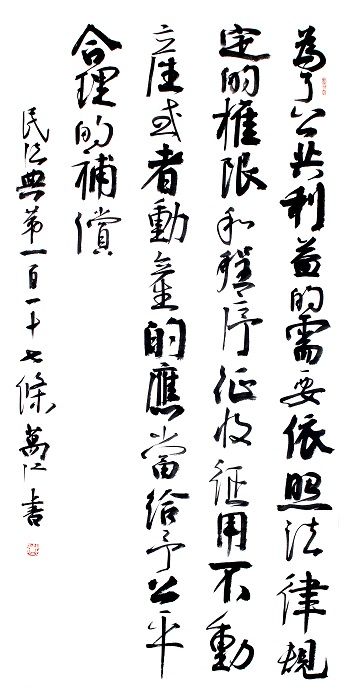 為了公共利益的需要依照法律規
定的權限和程序征收征用不動
産或者動産的應當給予公平
合理的補償
民法典第一百一十七條 萬 書